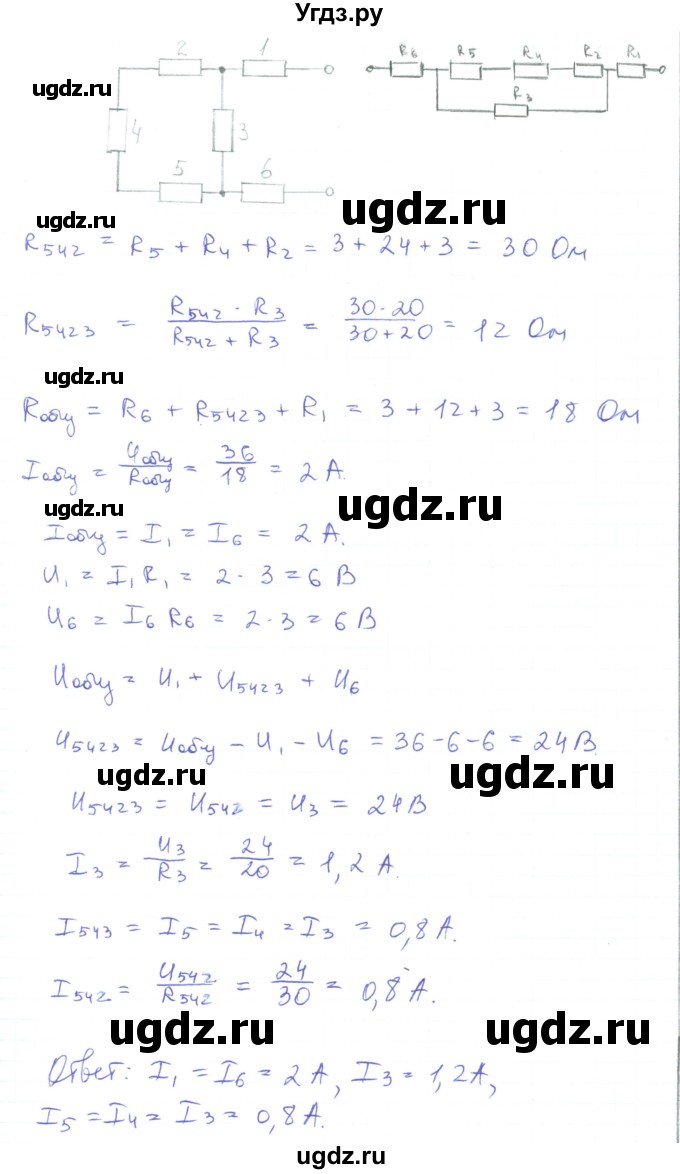 Угдз.ру
2 1
R₆ R₅ R₄ R₂ R₁
ugdz.ru
R₃
4 3
5 6
ugdz.ru
ugdz.ru
R₅₄₂ = R₅ + R₄ + R₂ = 3 + 24 + 3 = 30 Ом
R₅₄₂₃ = (R₅₄₂ · R₃)/(R₅₄₂ + R₃) = (30·20)/(30+20) = 12 Ом
ugdz.ru
Rобщ = R₆ + R₅₄₂₃ + R₁ = 3 + 12 + 3 = 18 Ом
Iобщ = Uобщ/Rобщ = 36/18 = 2 А.
ugdz.ru
ugdz.ru
Iобщ = I₁ = I₆ = 2 А.
U₁ = I₁ R₁ = 2 · 3 = 6 В
U₆ = I₆ R₆ = 2 · 3 = 6 В
ugdz.ru
Uобщ = U₁ + U₅₄₂₃ + U₆
U₅₄₂₃ = Uобщ – U₁ – U₆ = 36 – 6 – 6 = 24 В
ugdz.ru
ugdz.ru
U₅₄₂₃ = U₅₄₂ = U₃ = 24 В
I₃ = U₃/R₃ = 24/20 = 1,2 А.
I₅₄₃ = I₅ = I₄ = I₃ = 0,8 А.
I₅₄₂ = U₅₄₂/R₅₄₂ = 24/30 = 0,8 А.
ugdz.ru
ugdz.ru
Ответ: I₁ = I₆ = 2 А, I₃ = 1,2 А,
I₅ = I₄ = I₃ = 0,8 А.
ugdz.ru